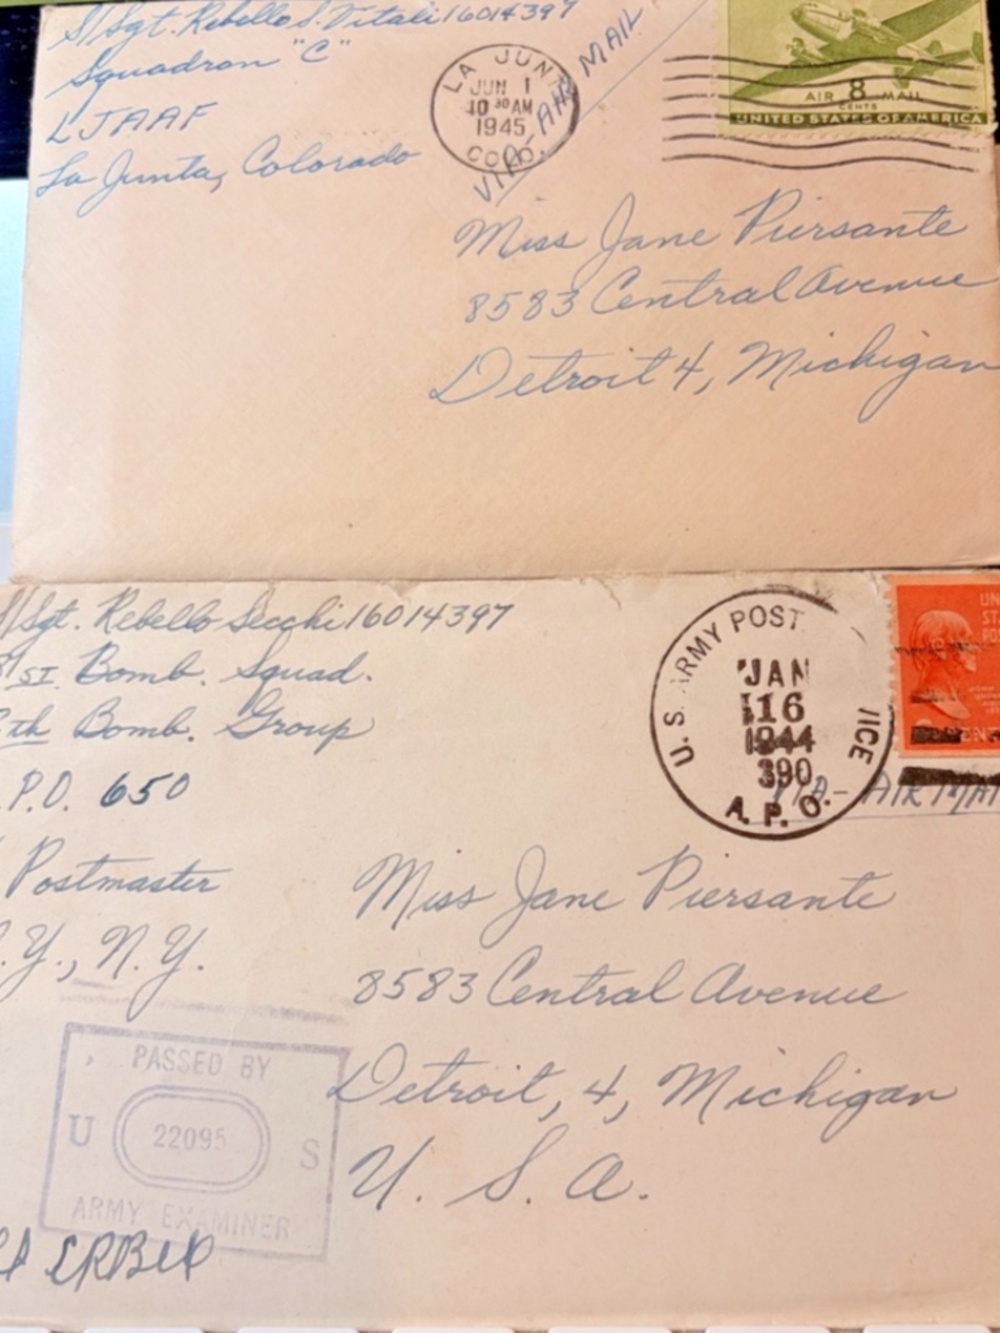 S/Sgt. Rebello S. Vitali 16014397
Squadron "C"
LJAAF
La Junta, Colorado
LA JUNTA
JUN 1
10 30 AM
1945
COLO.
VIA - AIR MAIL
AIR 8 MAIL
CENTS
UNITED STATES OF AMERICA
Miss Jane Piersante
8583 Central Avenue
Detroit 4, Michigan
S/Sgt. Rebello Secchi 16014397
1st Bomb. Squad.
th Bomb. Group
.P.O. 650
Postmaster
.Y., N.Y.
U.S. ARMY POST
JAN
16
1944
390
A.P.O.
VIA - AIR MAI
Miss Jane Piersante
8583 Central Avenue
Detroit, 4, Michigan
U. S. A.
PASSED BY
U 22095 S
ARMY EXAMINER